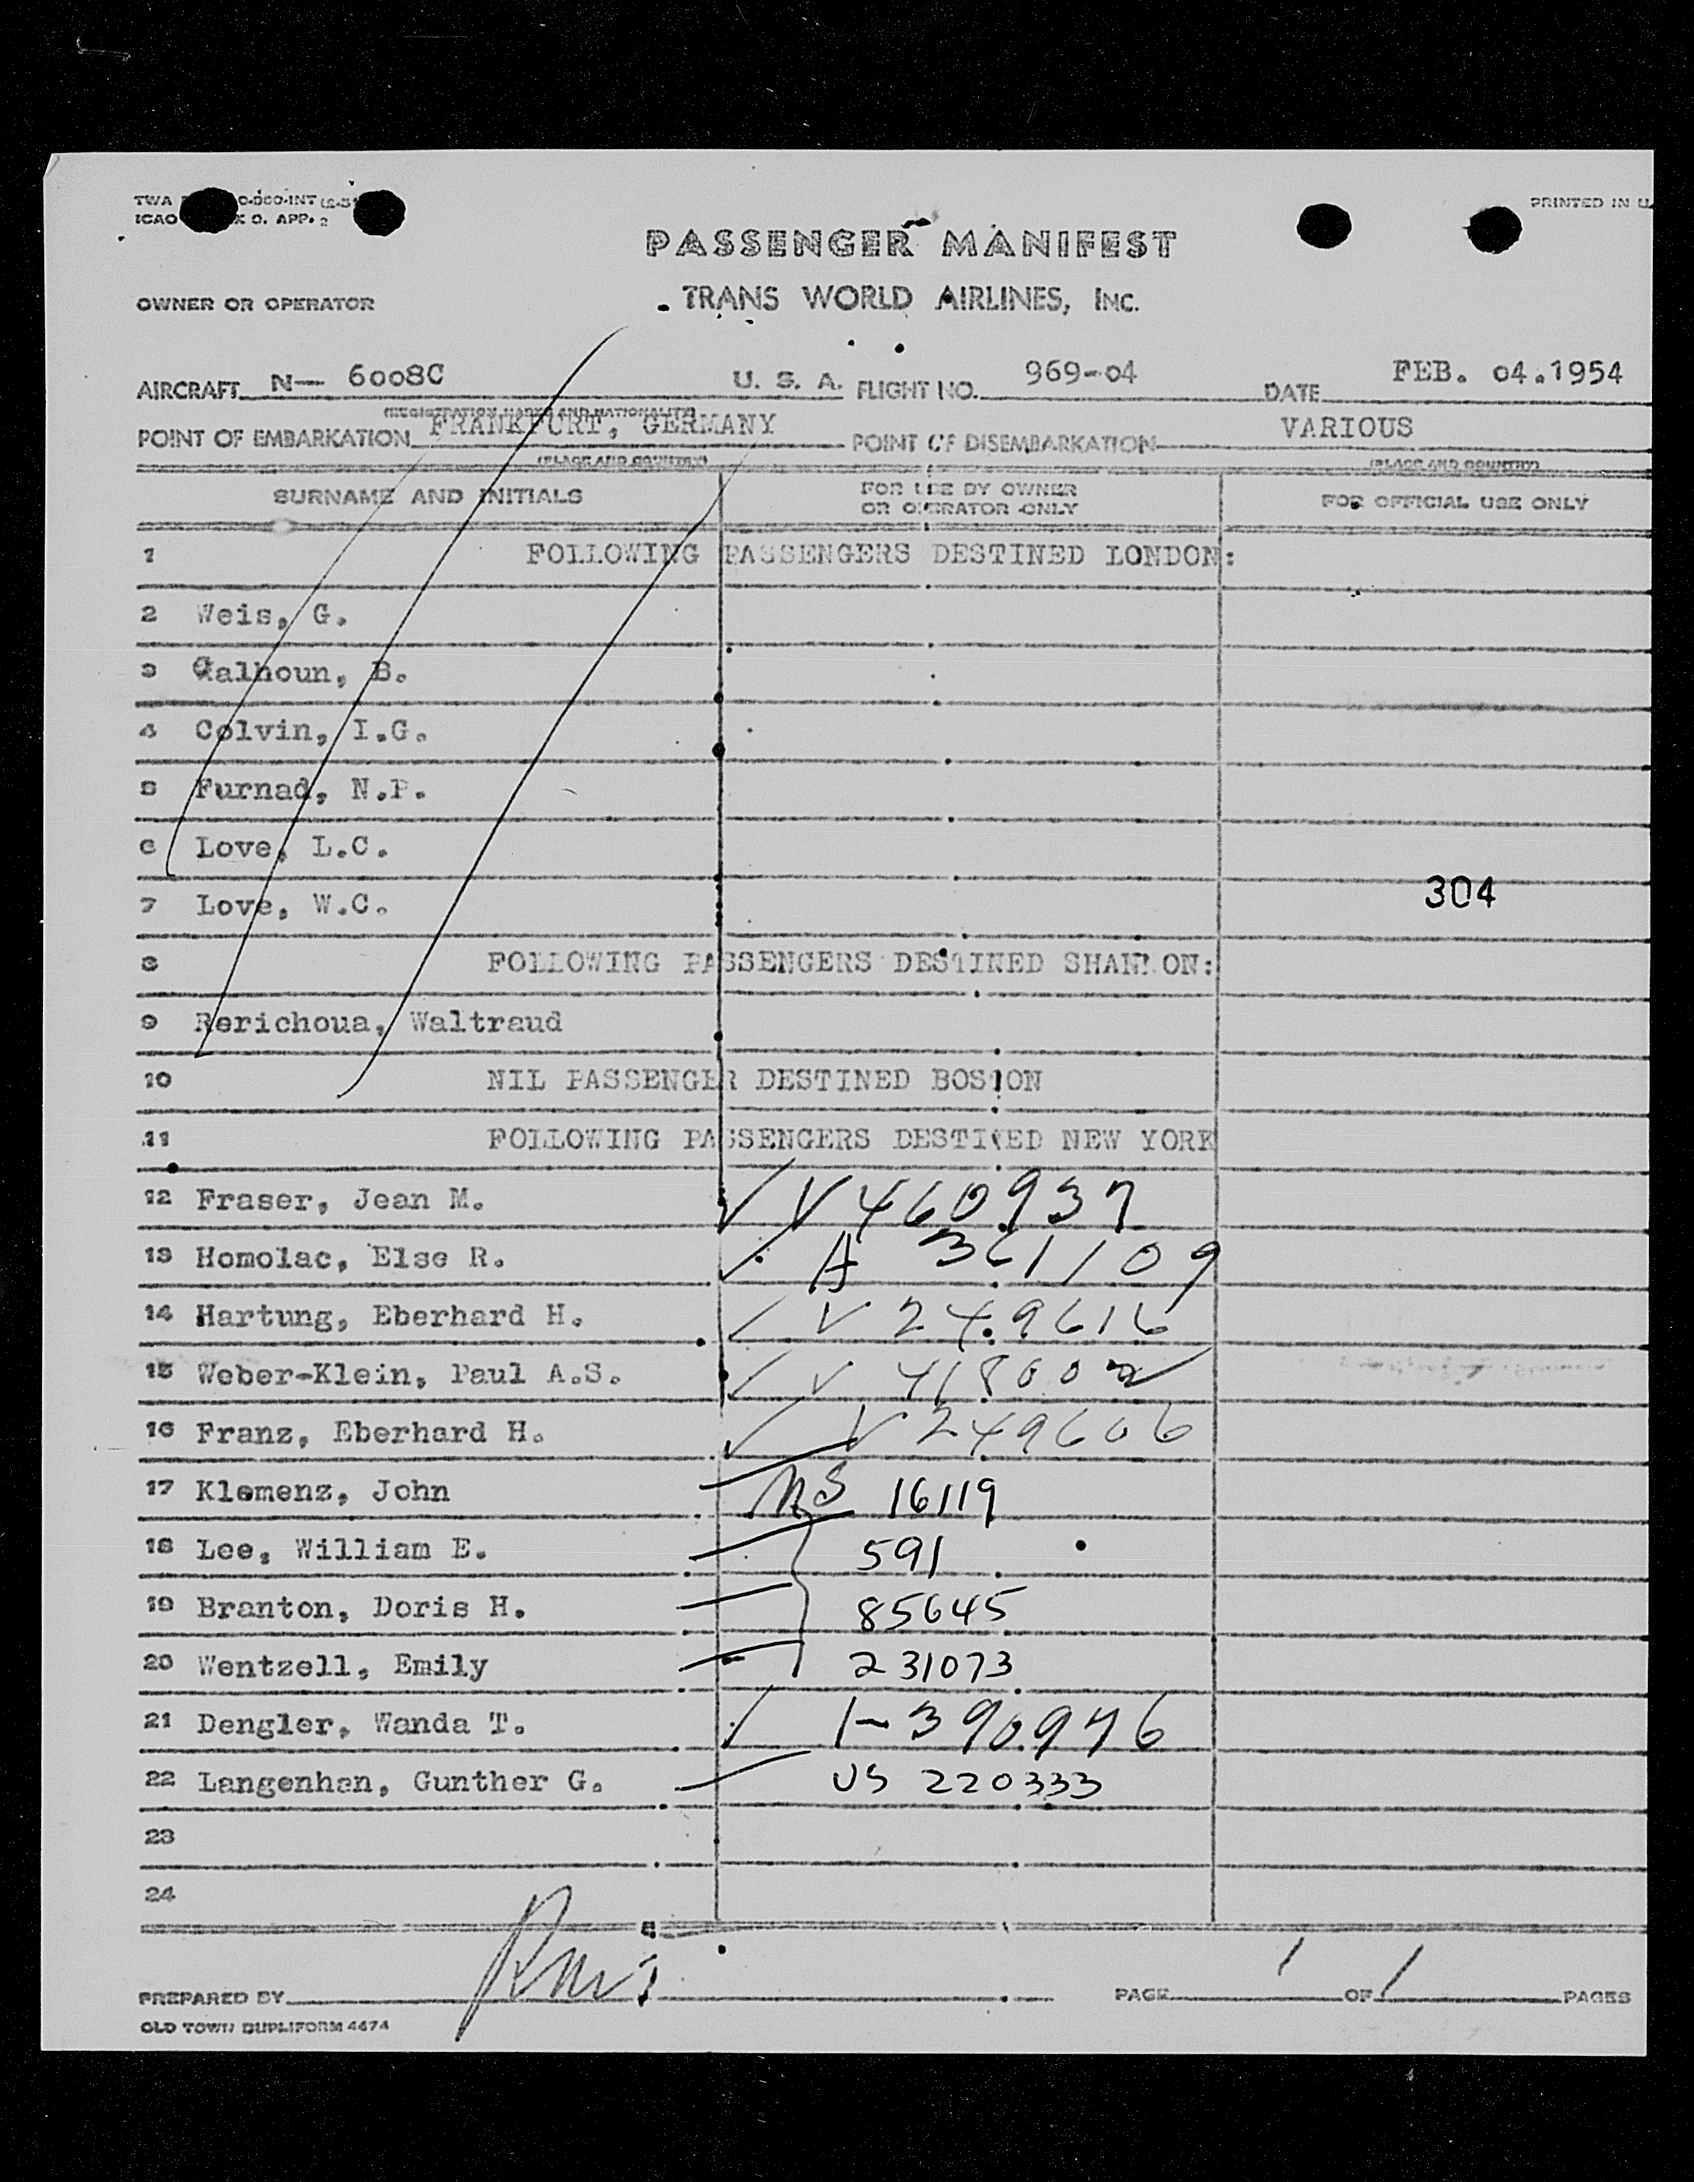 TWA O-000-INT
ICAO X 9. APP. 2
PRINTED IN U.
PASSENGER MANIFEST
OWNER OR OPERATOR TRANS WORLD AIRLINES, INC.
AIRCRAFT N— 6008C U. S. A. FLIGHT NO. 969-04 DATE FEB. 04.1954
(REGISTRATION MARKS AND NATIONALITY)
POINT OF EMBARKATION FRANKFURT, GERMANY POINT OF DISEMBARKATION VARIOUS
(PLACE AND COUNTRY) (PLACE AND COUNTRY)
SURNAME AND INITIALS FOR USE BY OWNER OR OPERATOR ONLY FOR OFFICIAL USE ONLY
1 FOLLOWING PASSENGERS DESTINED LONDON:
2 Weis, G.
3 Calhoun, B.
4 Colvin, I.G.
5 Furnad, N.P.
6 Love, L.C.
7 Love, W.C. 304
8 FOLLOWING PASSENGERS DESTINED SHANNON:
9 Rerichoua, Waltraud
10 NIL PASSENGER DESTINED BOSTON
11 FOLLOWING PASSENGERS DESTINED NEW YORK
12 Fraser, Jean M. ✓ V 460937
13 Homolac, Else R. ✓ A 361109
14 Hartung, Eberhard H. ✓ V 249616
15 Weber-Klein, Paul A.S. ✓ V 418002
16 Franz, Eberhard H. ✓ V 249606
17 Klemenz, John 16119
18 Lee, William E. 591
19 Branton, Doris H. 85645
20 Wentzell, Emily 231073
21 Dengler, Wanda T. ✓ 1-390976
22 Langenhan, Gunther G. US 220333
23
24
PREPARED BY PAGE 1 OF 1 PAGES
OLD TOWN DUPLIFORM 4474